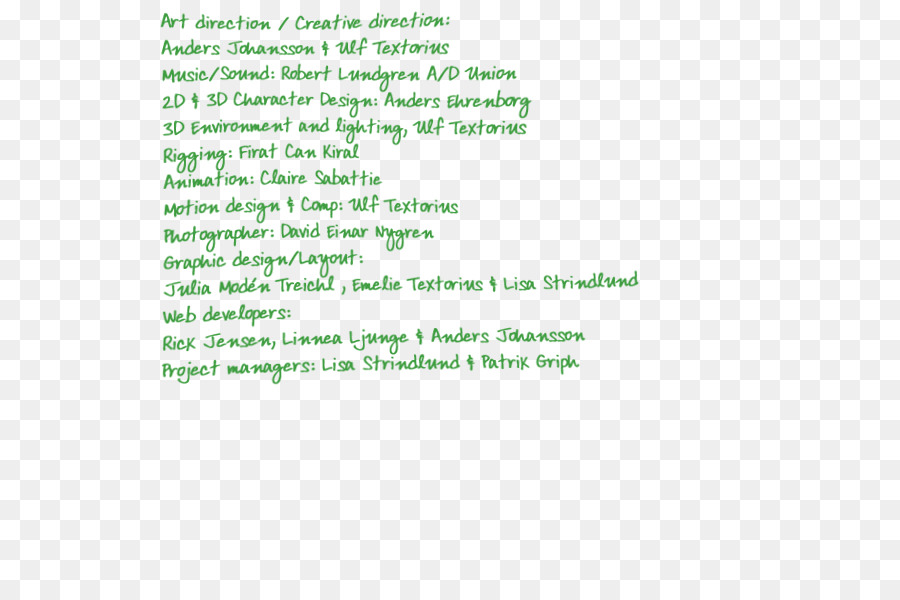 Art direction / Creative direction:
Anders Johansson & Ulf Textorius
Music/Sound: Robert Lundgren A/D Union
2D & 3D Character Design: Anders Ehrenborg
3D Environment and lighting, Ulf Textorius
Rigging: Firat Can Kiral
Animation: Claire Sabattie
Motion design & Comp: Ulf Textorius
Photographer: David Einar Nygren
Graphic design/Layout:
Julia Modén Treichl , Emelie Textorius & Lisa Strindlund
Web developers:
Rick Jensen, Linnea Ljunge & Anders Johansson
Project managers: Lisa Strindlund & Patrik Griph